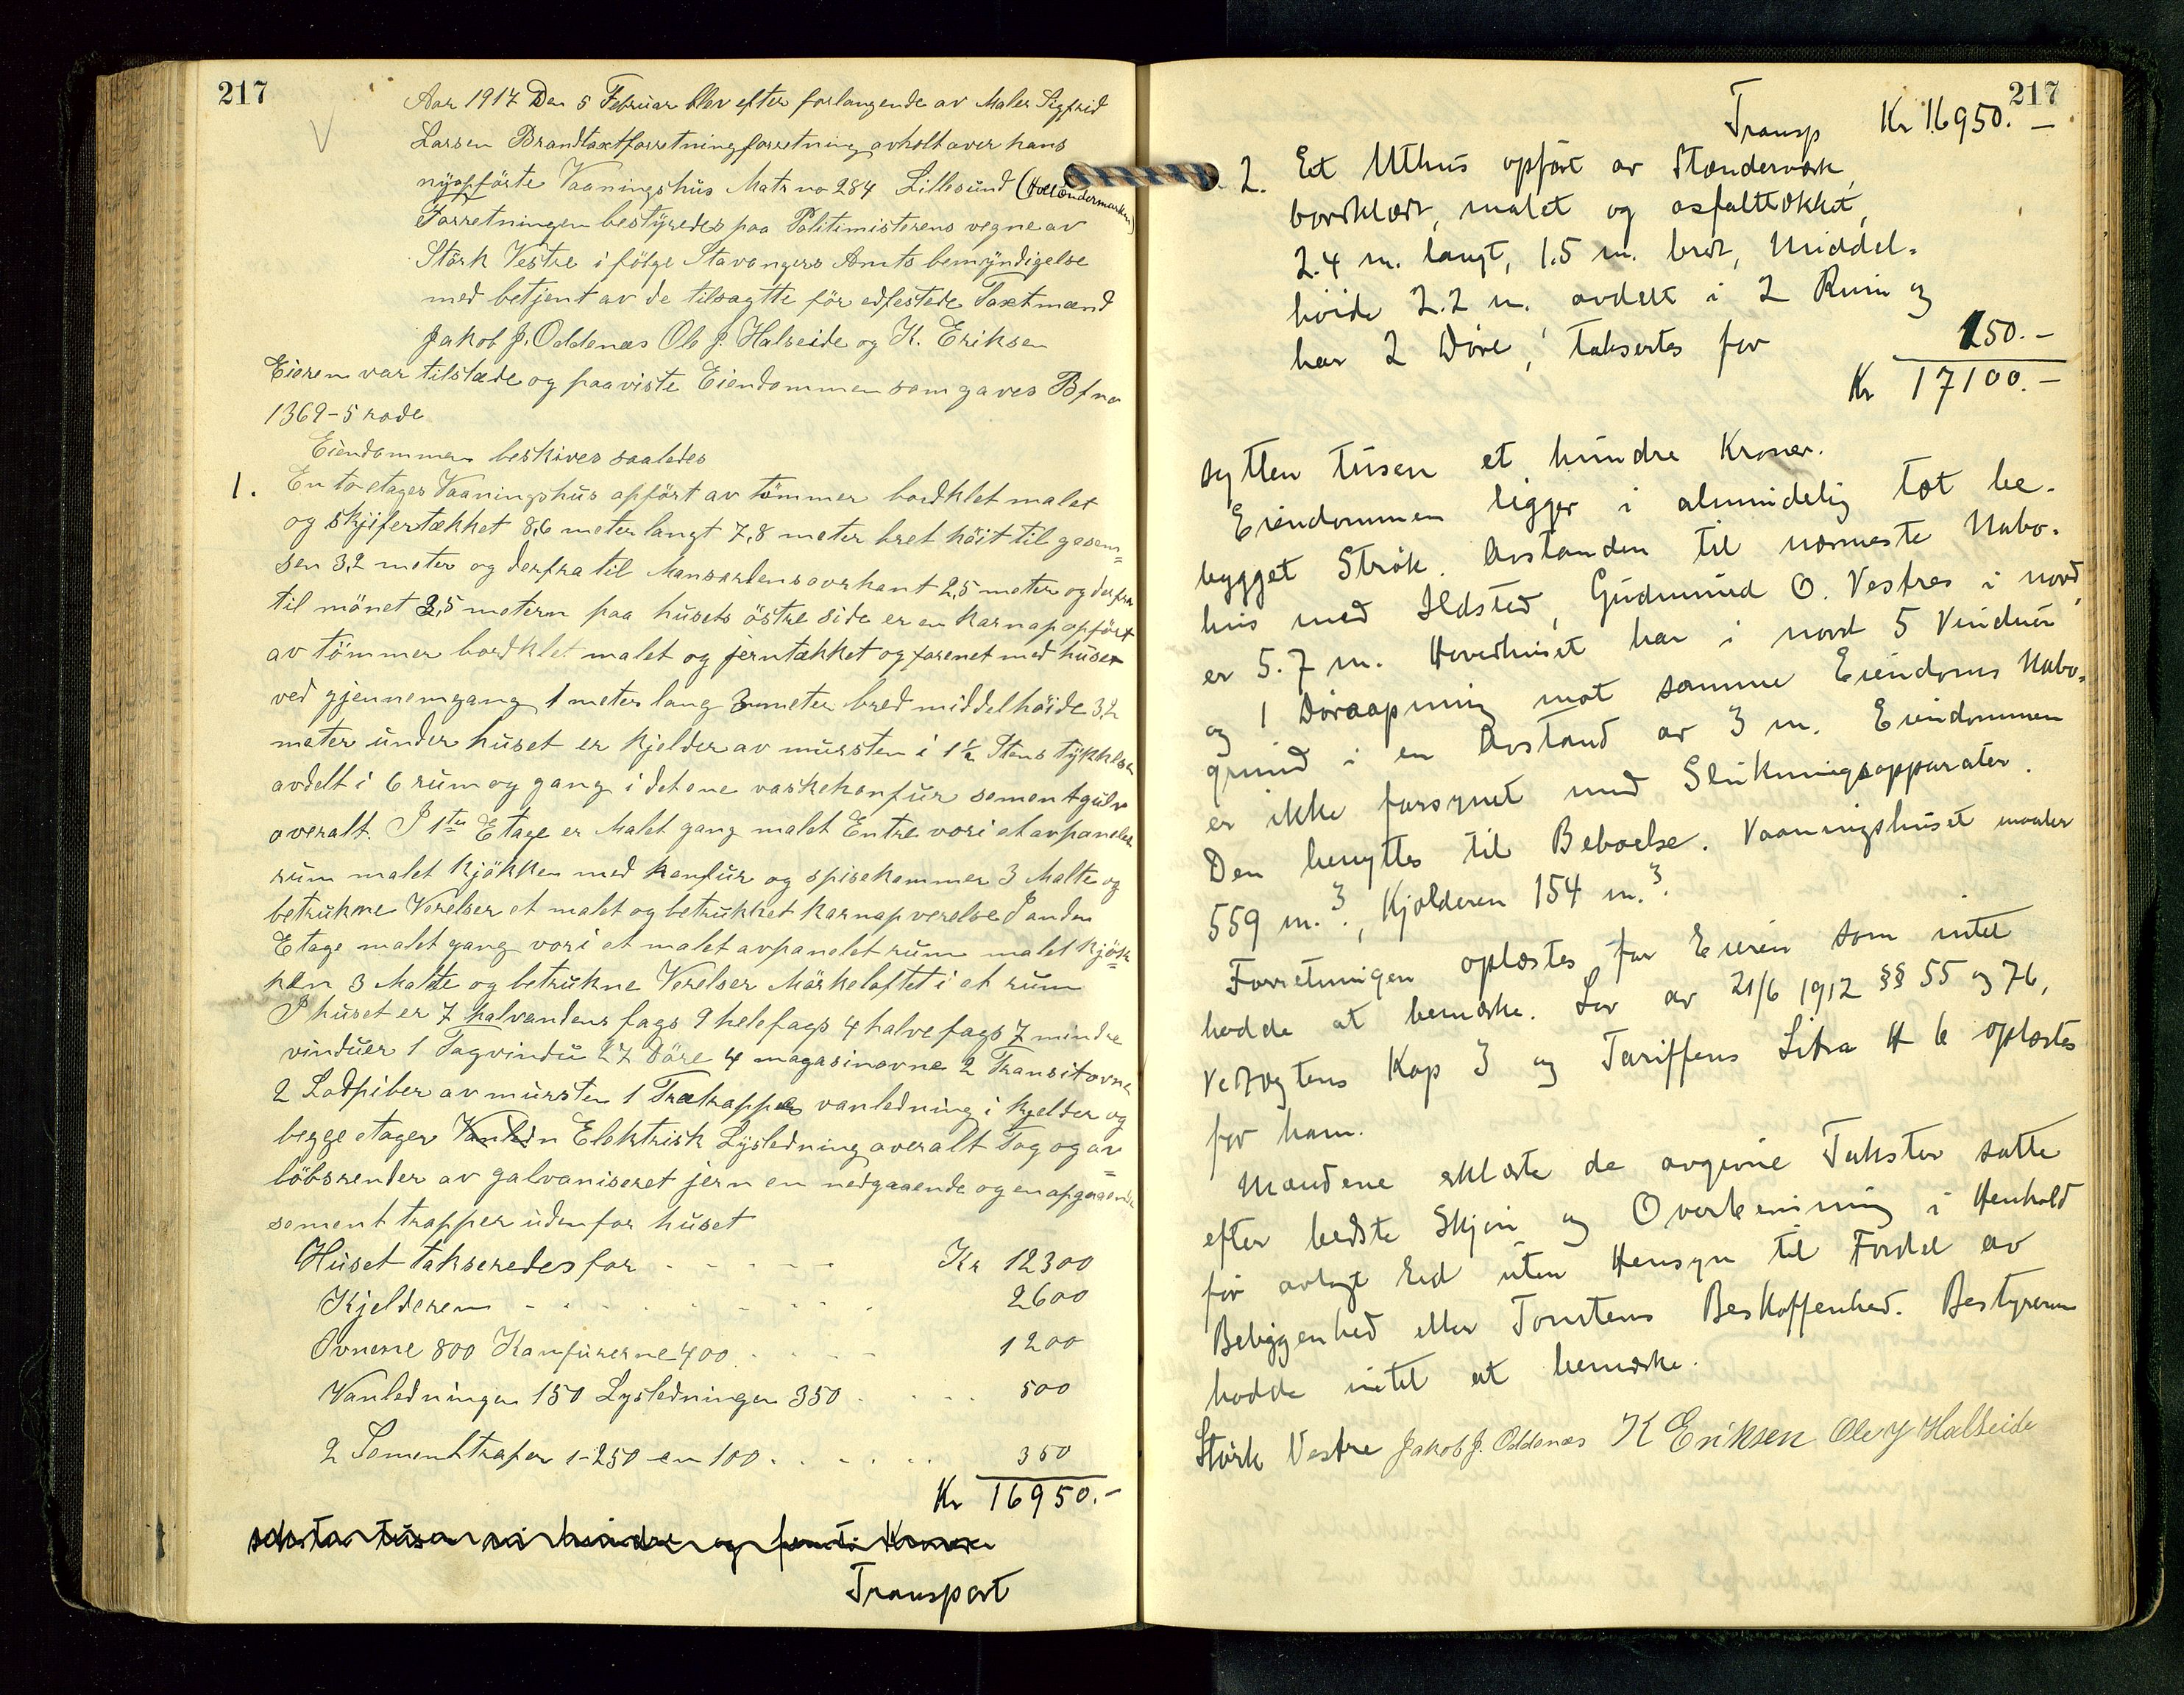 217
Aar 1917 Den 5 Februar blev efter forlangende av Maler Sigfrid
Larsen Brandtaxtforretningforretning avholt over hans
nyopförte Vaaningshus Matr no 284 Lillesund (Hollendermarken)
Forretningen bestyredes paa Politimisterens vegne av
Störk Vestre i fölge Stavangers Amts bemyndigelse
med betjent av de tilsagtte för edfestede Taxtmænd
Jakob J. Oddenæs Ole J. Halseide og K. Eriksen
Eieren var tilstæde og paaviste Eiendommen som gaves Bf no
1369-5 rode
Eiendommen beskives saaledes
1. En to etages Vaaningshus opfört av tömmer bordklet malet
og skjifertækket 8,6 meter langt 7,8 meter bret höit til gesem=
sen 3,2 meter og derfra til Mansardens overkant 2,5 meter og derfra
til mönet 3,5 metern paa husets östre side er en karnap opfört
av tömmer bordklet malet og jerntækket og forenet med huset
ved gjennemgang 1 meter lang 3 meter bred middelhöide 3,2
meter under huset er kjelder av mursten i 1½ Stens tykkelse
avdelt i 6 rum og gang i det ene vaskekonfur sementgulv
overalt. I 1ste Etage er Malet gang malet Entre vori et avpanelet
rum malet kjökken med konfur og spisekammer 3 Malte og
betrukne Verelser et malet og betrukket karnapverelse I anden
Etage malet gang vori et malet avpanelet rum malet kjök=
ken 3 Malte og betrukne Verelser Mörkeloftet i et rum
I huset er 7 halvandens fags 9 helefags 4 halvefags 7 mindre
vinduer 1 Tagvindu 27 Döre 4 magasinovne 2 Transitovne
2 Lodpiber av mursten 1 Trætrappe vanledning i kjelder og
begge etager Elektrisk Lysledning overalt Tag og av
löbsrender av galvaniseret jern en nedgaaende og en opgaaende
sement trapper udenfor huset
Huset takseredes for - - - - - Kr 12300
Kjelderen - - - - - - - - 2600
Ovnene 800 Konfurerne 400 - - - - 1200
Vanledningen 150 Lysledningen 350 - - - 500
2 Sementtraper 1-250 en 100 . - - . . 350
Kr 16950.-
seksten tusen ni hundre og femti Kroner
Transport
217
Transp Kr 16950.-
2. Et Uthus opført av Stænderværk,
bordklædt, malet og asfalttækket,
2.4 m. langt, 1.5 m. bredt, Middel-
høide 2.2 m. avdelt i 2 Rum og
har 2 Døre, taksertes for 150.-
Kr 17100.-
sytten tusen et hundre Kroner.
Eiendommen ligger i almindelig tæt be-
bygget Strøk. Avstanden til nærmeste Nabo-
hus med Ildsted, Gudmund O. Vestres i nord,
er 5.7 m. Hovedhuset har i nord 5 Vinduer
og 1 Døraapning mot samme Eiendoms Nabo-
grund i en Avstand av 3 m. Eiendommen
er ikke forsynet med Slukningsapparater.
Den benyttes til Beboelse. Vaaningshuset maaler
559 m.3, Kjælderen 154 m.3.
Forretningen oplæstes for Eieren som intet
hadde at bemærke. Lov av 21/6 1912 §§ 55 og 76,
Vedtægtens Kap 3 og Tariffens Litra H 6 oplæstes
for ham.
Mændene erklærte de avgivne Takster satte
efter bedste Skjøn og Overbevisning i Henhold
før avlagt Eed uten Hensyn til Fordel av
Beliggenhed eller Tomtens Beskaffenhed. Bestyreren
hadde intet at bemærke.
Størk Vestre Jakob J. Oddenæs K Eriksen Ole J Halseide